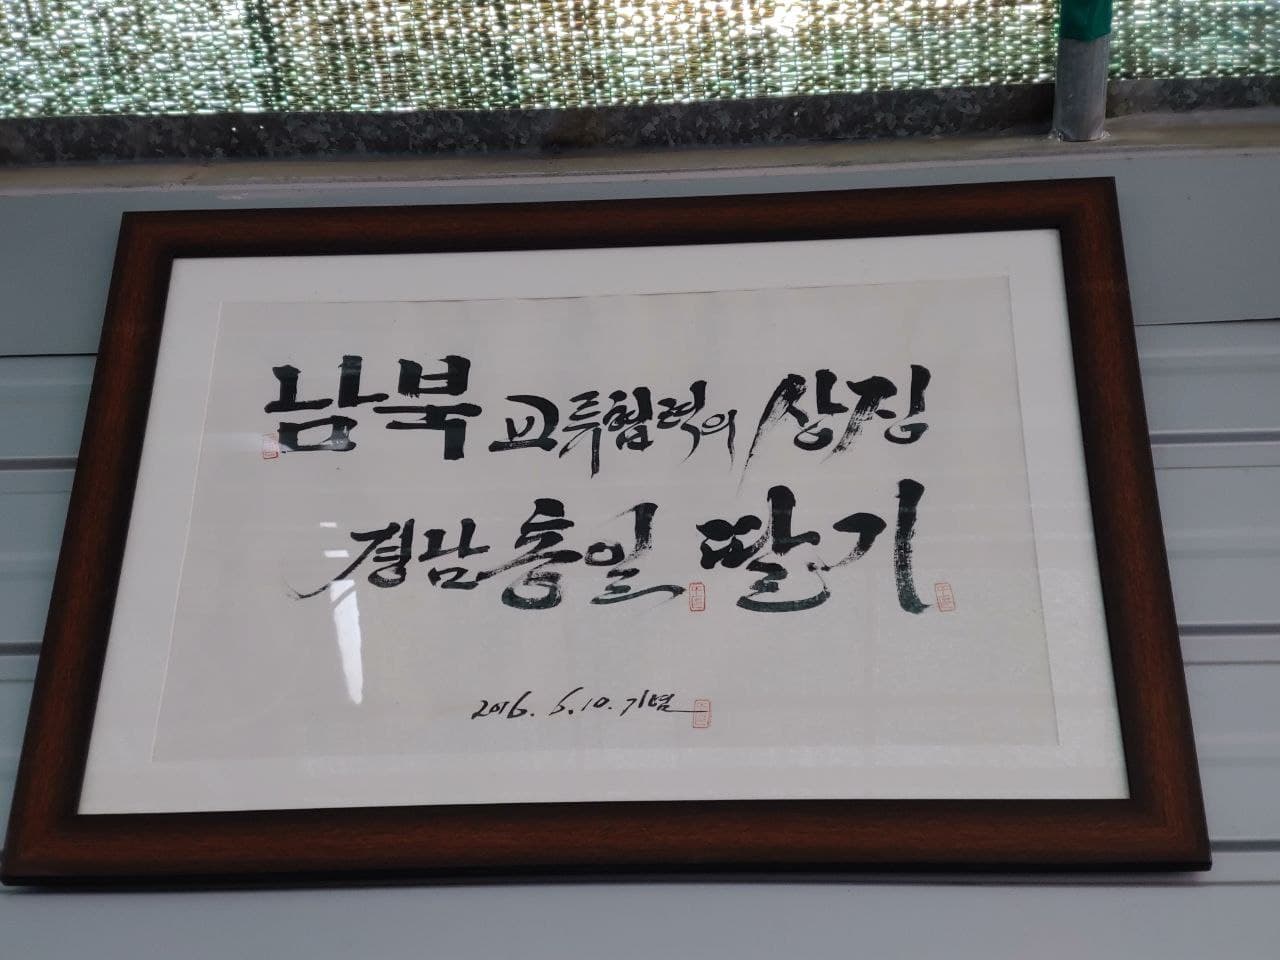 남북 교류협력의 상징
경남통일 딸기
2016. 5.10. 기념